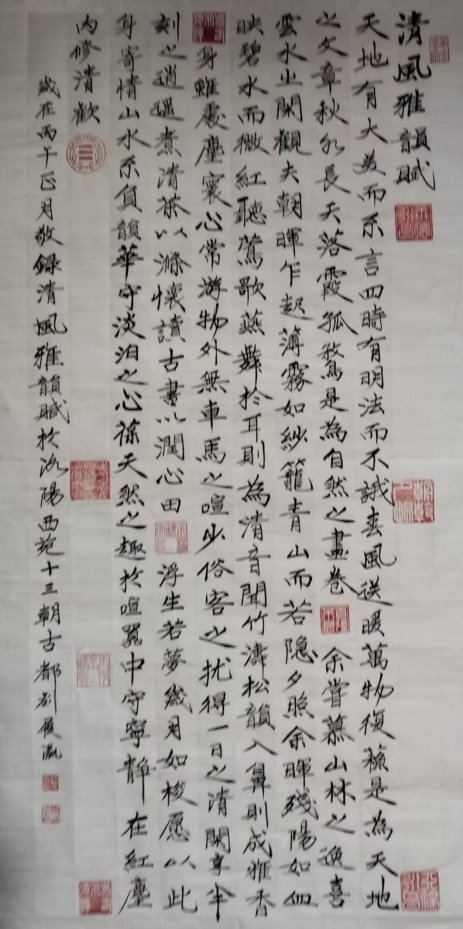 清風雅韻賦
天地有大美而不言四時有明法而不議春風送暖萬物復蘇是為天地
之文章秋水長天落霞孤鶩是為自然之畫卷 余嘗慕山林之逸喜
雲水之閑觀夫朝暉乍起薄霧如紗籠青山而若隱夕照余暉殘陽如血
映碧水而微紅聽鶯歌燕舞於耳則為清音聞竹濤松韻入鼻則成雅香
身雖處塵寰心常游物外無車馬之喧少俗客之扰得一日之清閑享半
刻之逍遥煮清茶以滌懷讀古書以潤心田 浮生若夢歲月如梭愿以此
身寄情山水不負韻華守淡泊之心葆天然之趣於喧囂中守寧靜 在紅塵
内修清歡
歲在丙午正月敬錄清風雅韻賦於洛陽西苑十三朝古都刘